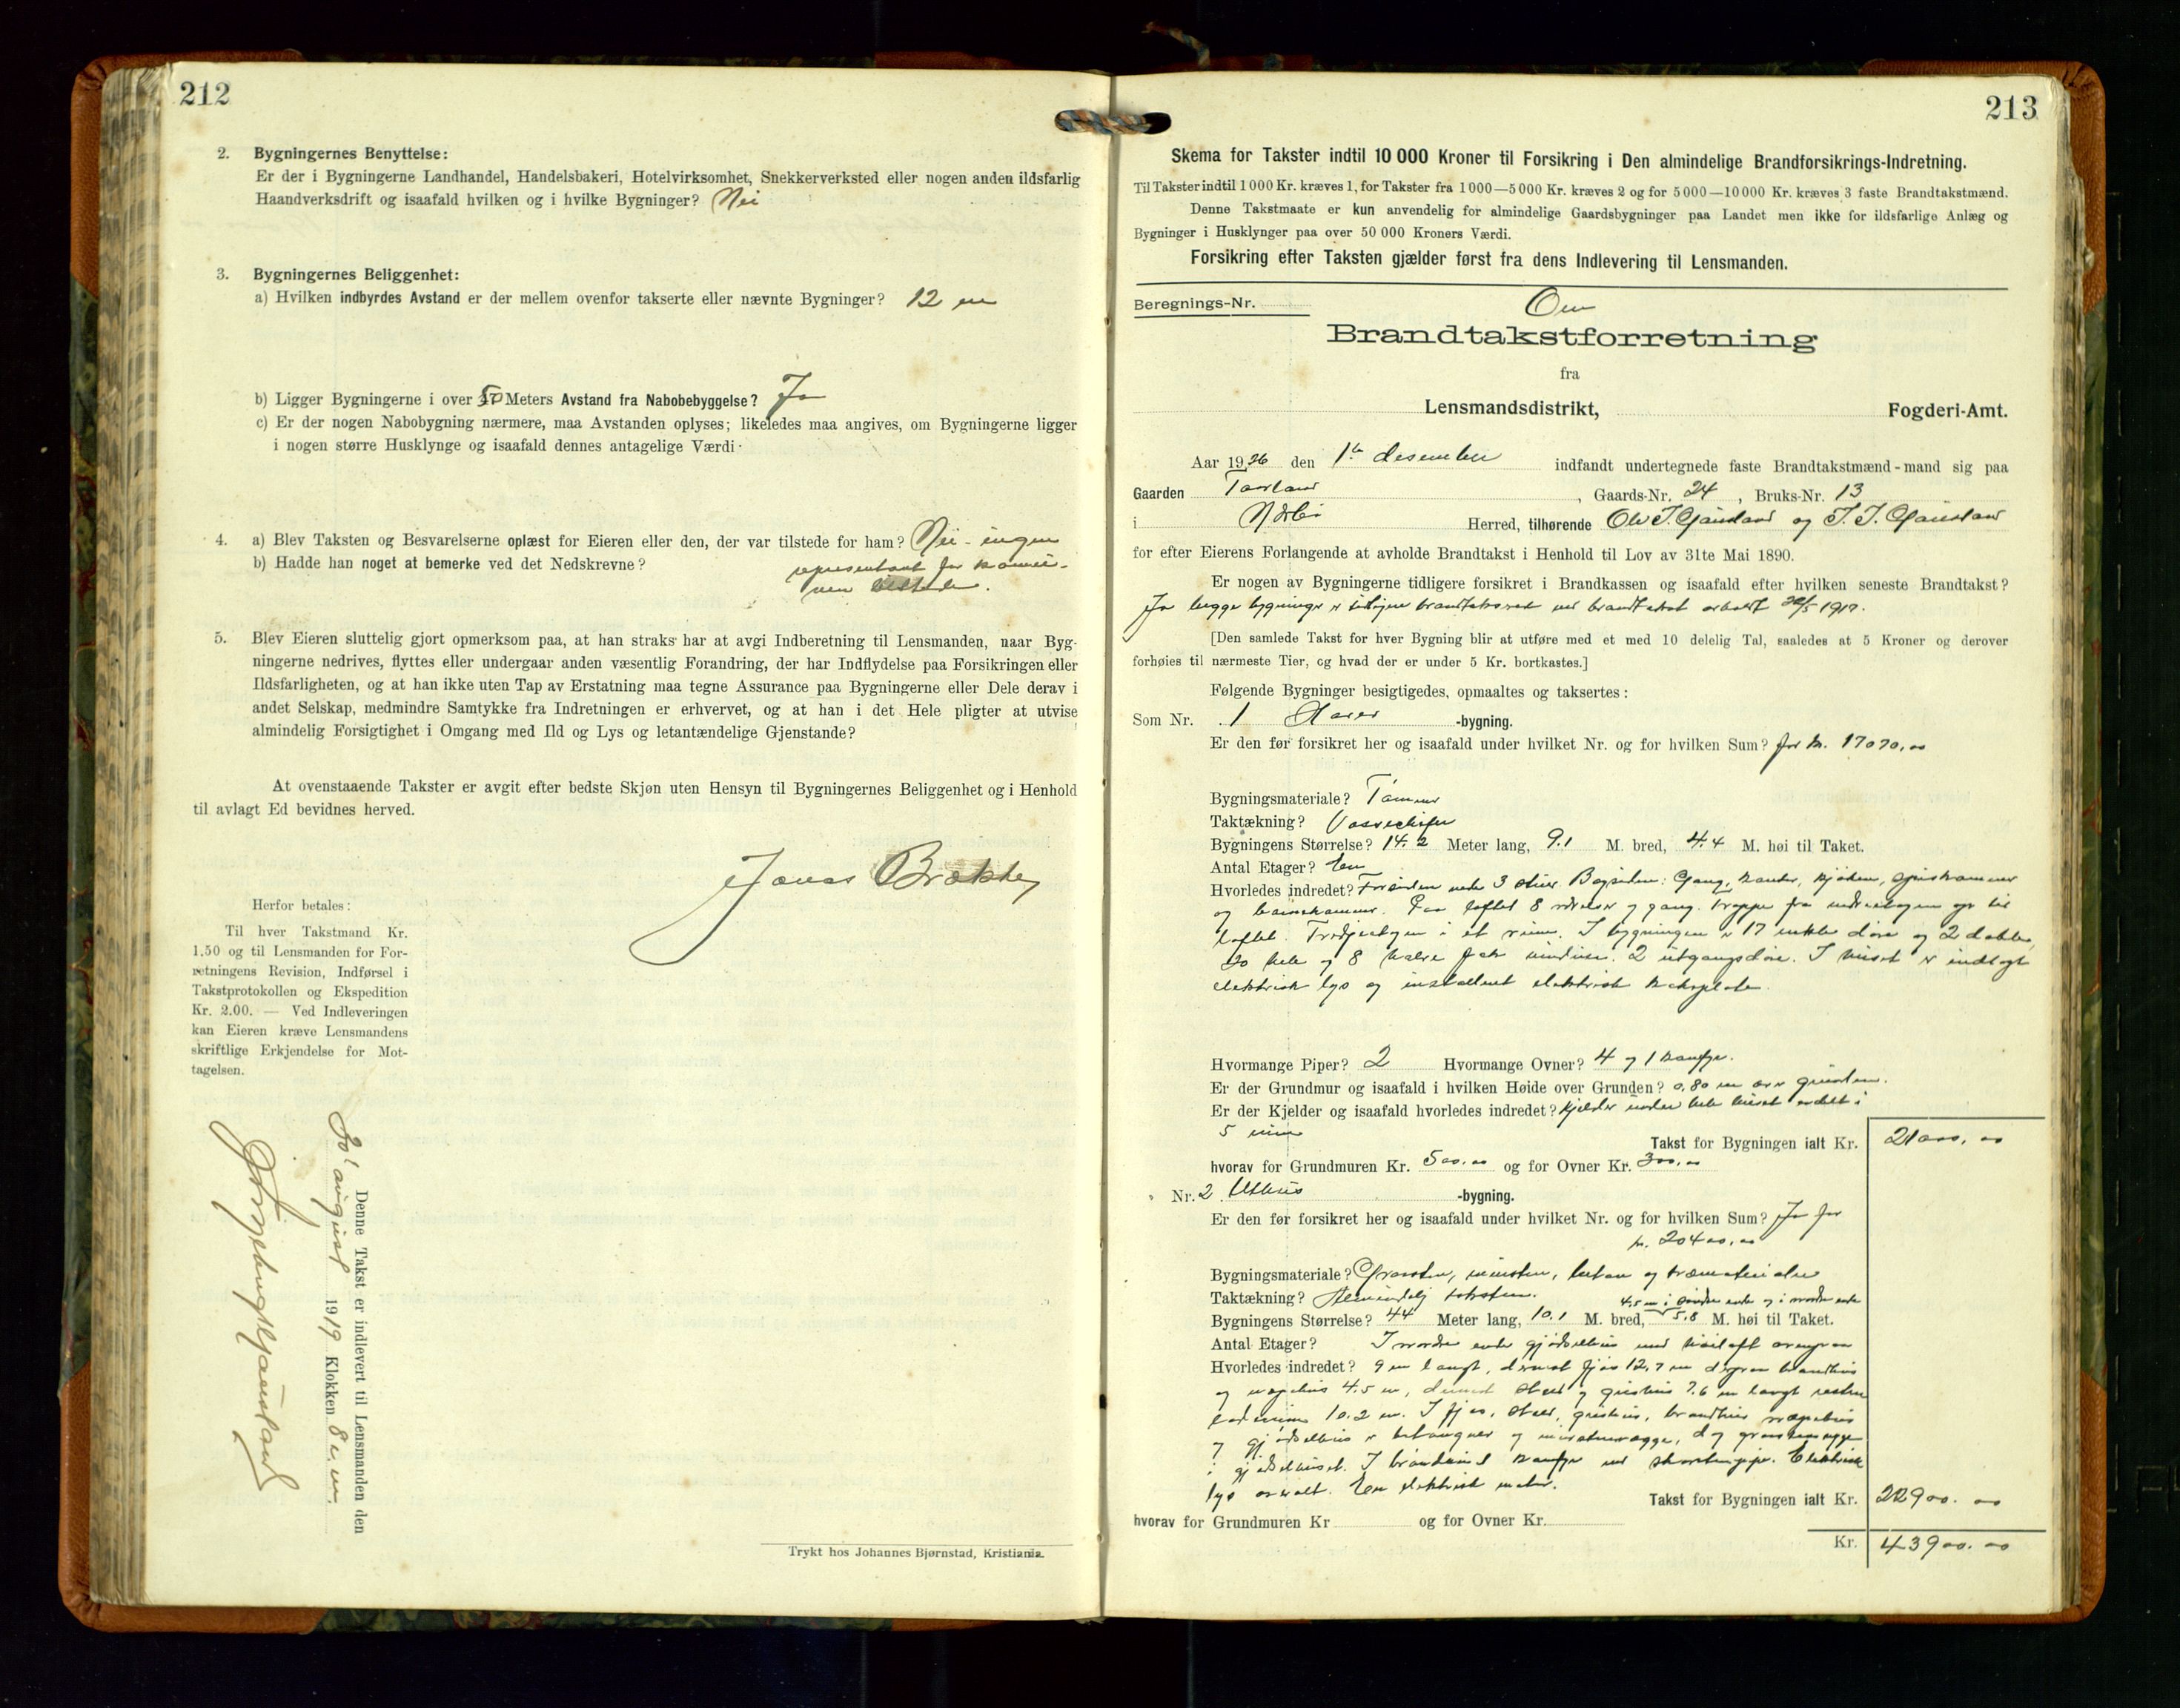 212
2. Bygningernes Benyttelse:
Er der i Bygningerne Landhandel, Handelsbakeri, Hotelvirksomhet, Snekkerverksted eller nogen anden ildsfarlig
Haandverksdrift og isaafald hvilken og i hvilke Bygninger? Nei
3. Bygningernes Beliggenhet:
a) Hvilken indbyrdes Avstand er der mellem ovenfor takserte eller nævnte Bygninger? 12 m
b) Ligger Bygningerne i over 50 Meters Avstand fra Nabobebyggelse? Ja
c) Er der nogen Nabobygning nærmere, maa Avstanden oplyses; likeledes maa angives, om Bygningerne ligger
i nogen større Husklynge og isaafald dennes antagelige Værdi.
4. a) Blev Taksten og Besvarelserne oplæst for Eieren eller den, der var tilstede for ham? Nei - ingen
b) Hadde han noget at bemerke ved det Nedskrevne? representant for kommu-
nen tilstede.
5. Blev Eieren sluttelig gjort opmerksom paa, at han straks har at avgi Indberetning til Lensmanden, naar Byg-
ningerne nedrives, flyttes eller undergaar anden væsentlig Forandring, der har Indflydelse paa Forsikringen eller
Ildsfarligheten, og at han ikke uten Tap av Erstatning maa tegne Assurance paa Bygningerne eller Dele derav i
andet Selskap, medmindre Samtykke fra Indretningen er erhvervet, og at han i det Hele pligter at utvise
almindelig Forsigtighet i Omgang med Ild og Lys og letantændelige Gjenstande?
At ovenstaaende Takster er avgit efter bedste Skjøn uten Hensyn til Bygningernes Beliggenhet og i Henhold
til avlagt Ed bevidnes herved.
Jonas
Herfor betales:
Til hver Takstmand Kr.
1.50 og til Lensmanden for For-
retningens Revision, Indførsel i
Takstprotokollen og Ekspedition
Kr. 2.00. — Ved Indleveringen
kan Eieren kræve Lensmandens
skriftlige Erkjendelse for Mot-
tagelsen.
Denne Takst er indlevert til Lensmanden den
august 1919 Klokken 8
Trykt hos Johannes Bjørnstad, Kristiania.
213
Skema for Takster indtil 10 000 Kroner til Forsikring i Den almindelige Brandforsikrings-Indretning.
Til Takster indtil 1000 Kr. kræves 1, for Takster fra 1000—5000 Kr. kræves 2 og for 5000—10000 Kr. kræves 3 faste Brandtakstmænd.
Denne Takstmaate er kun anvendelig for almindelige Gaardsbygninger paa Landet men ikke for ildsfarlige Anlæg og
Bygninger i Husklynger paa over 50 000 Kroners Værdi.
Forsikring efter Taksten gjælder først fra dens Indlevering til Lensmanden.
Beregnings-Nr.
Om
Brandtakstforretning
fra
Lensmandsdistrikt, Fogderi-Amt.
Aar 1926 den 1ste desember indfandt undertegnede faste Brandtakstmænd-mand sig paa
Gaarden Taarland, Gaards-Nr. 24, Bruks-Nr. 13
i Nærbø Herred, tilhørende og
for efter Eierens Forlangende at avholde Brandtakst i Henhold til Lov av 31te Mai 1890.
Er nogen av Bygningerne tidligere forsikret i Brandkassen og isaafald efter hvilken seneste Brandtakst?
Ja begge bygninger er tidligere ved brandtakst avholdt
[Den samlede Takst for hver Bygning blir at utføre med et med 10 delelig Tal, saaledes at 5 Kroner og derover
forhøies til nærmeste Tier, og hvad der er under 5 Kr. bortkastes.]
Følgende Bygninger besigtigedes, opmaaltes og taksertes:
Som Nr. 1 -bygning.
Er den før forsikret her og isaafald under hvilket Nr. og for hvilken Sum? for kr. 17070,00
Bygningsmateriale? Tømmer
Taktækning? Vosseskifer
Bygningens Størrelse? 14.2 Meter lang, 9.1 M. bred, 4.4 M. høi til Taket.
Antal Etager? En
Hvorledes indredet? Forsiden nede 3 stuer. Baksiden: Gang, kontor, kjøken, spiskammer
og barnekammer. Paa loftet 8 værelser og gang. Trappe fra underetagen op til
loftet. Tredjeetagen i et rum. I bygningen er 17 enkle døre og 2 doble,
20 hele og 8 halve fag vinduer. 2 utgangsdøre. I huset er indlagt
elektrisk lys og installert elektrisk kokeplate.
Hvormange Piper? 2 Hvormange Ovner? 4 og 1 komfyr.
Er der Grundmur og isaafald i hvilken Høide over Grunden? 0,80 m over grunden.
Er der Kjelder og isaafald hvorledes indredet? Kjelder under hele huset avdelt i
5 rum
Takst for Bygningen ialt Kr. 21000,00
hvorav for Grundmuren Kr. 500,00 og for Ovner Kr. 300,00
" Nr. 2 Uthus -bygning.
Er den før forsikret her og isaafald under hvilket Nr. og for hvilken Sum? Ja for
kr. 20400,00
Bygningsmateriale? Graasten, mursten, beton og træmaterialer
Taktækning? Almindelig taksten.
4,5 m i søndre ende og i nordre ende
Bygningens Størrelse? 44 Meter lang, 10.1 M. bred, 5,8 M. høi til Taket.
Antal Etager? I nordre ende gjødselhus med høiloft ovenpaa
Hvorledes indredet? 9 m langt, dernæst fjøs 12,7 m
og vognhus 4.5 m, dernæst stald og grisehus 7.6 m langt resten
laderum 10.2 m. I fjøs, stald, grisehus,
og gjødselhus er betongulv og murstensvægge,
i gjødselhuset. I komfyr med skorstenspipe. Elektrisk
lys overalt. En elektrisk motor.
Takst for Bygningen ialt Kr. 22900.00
hvorav for Grundmuren Kr og for Ovner Kr.
Kr. 43900.00